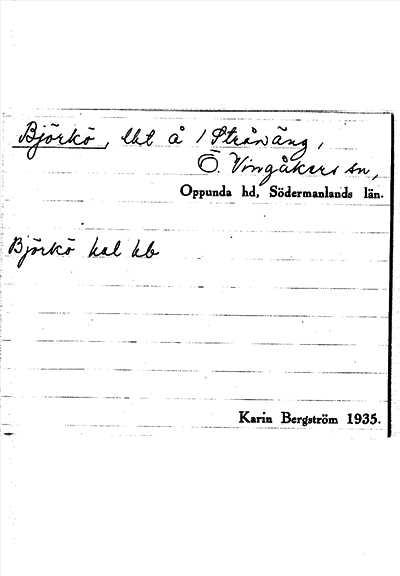 Björkö, lht å 1 Strånäng,
Ö. Vingåkers sn,
Oppunda hd, Södermanlands län.
Björkö hal hb
Karin Bergström 1935.